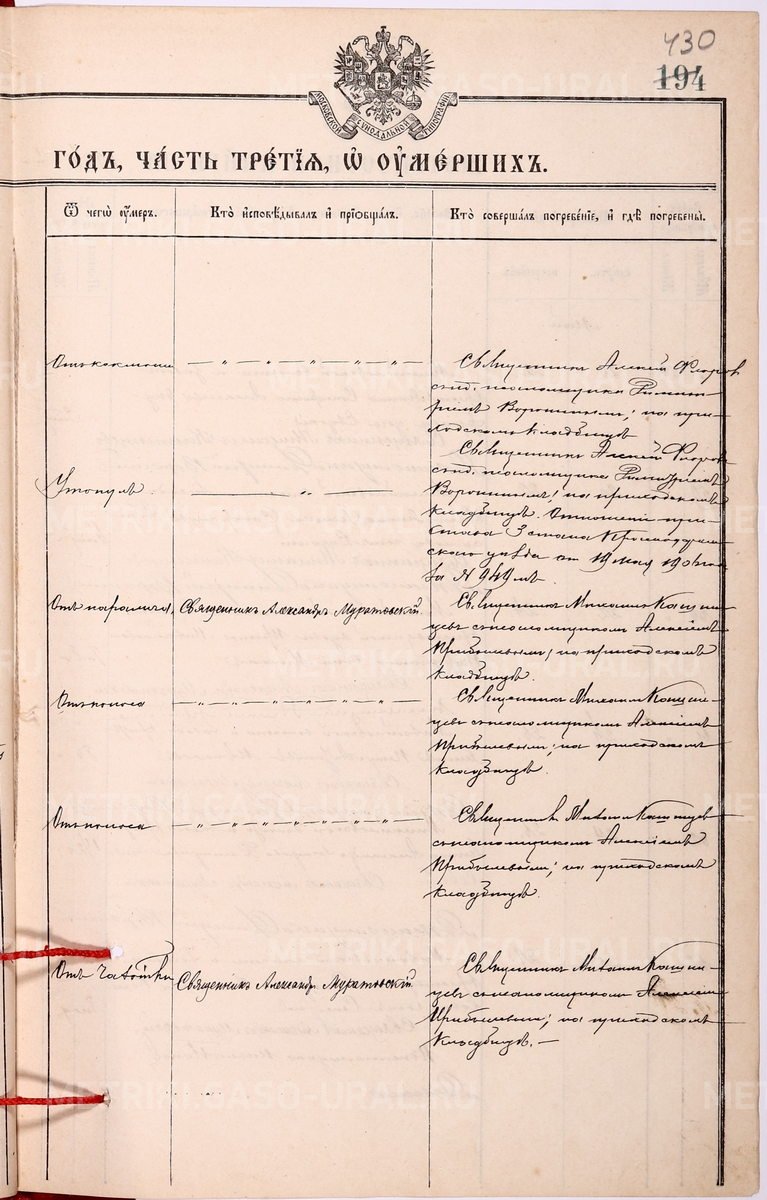 430
194
МОСКОВСКОЙ СѴНОДАЛЬНОЙ ТИПОГРАФІИ
ГО́ДЪ, ЧА́СТЬ ТРЕ́ТІѦ, Ѡ҆ ОУ҆МЕ́РШИХЪ.
Ѿ чегѡ̀ оу҆́меръ.
Кто̀ и҆сповѣ́дывалъ и҆ прїѡбща́лъ.
Кто̀ соверша́лъ погребе́нїе, и҆ гдѣ̀ погребены̀.
Священникъ Алексѣй Флоров
псаломщика
Воронинымъ; на при-
ходскомъ кладбищѣ
Священникъ Алексѣй Флоров
псаломщика
Утонулъ.
Воронинымъ; на приходскомъ
кладбищѣ. Отношеніе при-
става 3 стана Красноуфим-
скаго уѣзда от 19 мая 190
за № 949мъ.
Отъ паралича,
Священникъ Александръ Муратовскій.
Священникъ Михаилъ
съ псаломщикомъ Алексѣемъ
Прибылевымъ; на приходскомъ
кладбищѣ.
Отъ поноса
Священникъ Михаилъ
съ псаломщикомъ Алексѣемъ
Прибылевымъ; на приходскомъ
кладбищѣ.
Отъ поноса
Священникъ Михаилъ
съ псаломщикомъ Алексѣемъ
Прибылевымъ; на приходскомъ
кладбищѣ.
Отъ чахотки
Священникъ Александръ Муратовскій.
Священникъ Михаилъ
съ псаломщикомъ Алексѣемъ
Прибылевым; на приходскомъ
кладбищѣ. —
METRIKI.GASO-URAL.RU